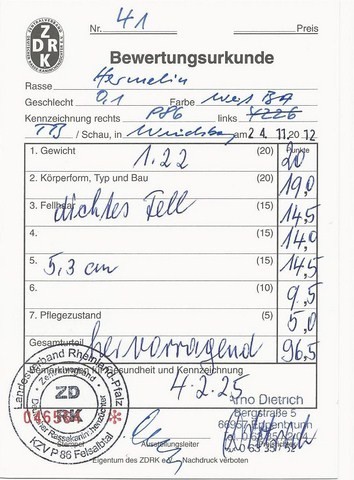 ZDRK
Nr. 41 Preis
Bewertungsurkunde
Rasse Hermelin
Geschlecht 0,1 Farbe weiß BA
Kennzeichnung rechts P86 links
/ Schau, in am 24. 11. 2012
Punkte
1. Gewicht 1.22 (20) 20
2. Körperform, Typ und Bau (20) 19,0
3. Fellhaar dichtes Fell (15) 14,5
4. (15) 14,0
5. 5,3 cm (15) 14,5
6. (10) 9,5
7. Pflegezustand (5) 5,0
Gesamturteil hervorragend 96,5
Bemerkungen Gesundheit und Kennzeichnung
4.2.25
Landesverband Rheinland-Pfalz
ZDRK
Deutscher Rassekaninchenzüchter
KZV P 86 Felsalbtal
Arno Dietrich
Bergstraße 5
Stempel Ausstellungsleiter
Eigentum des ZDRK e.V. Nachdruck verboten